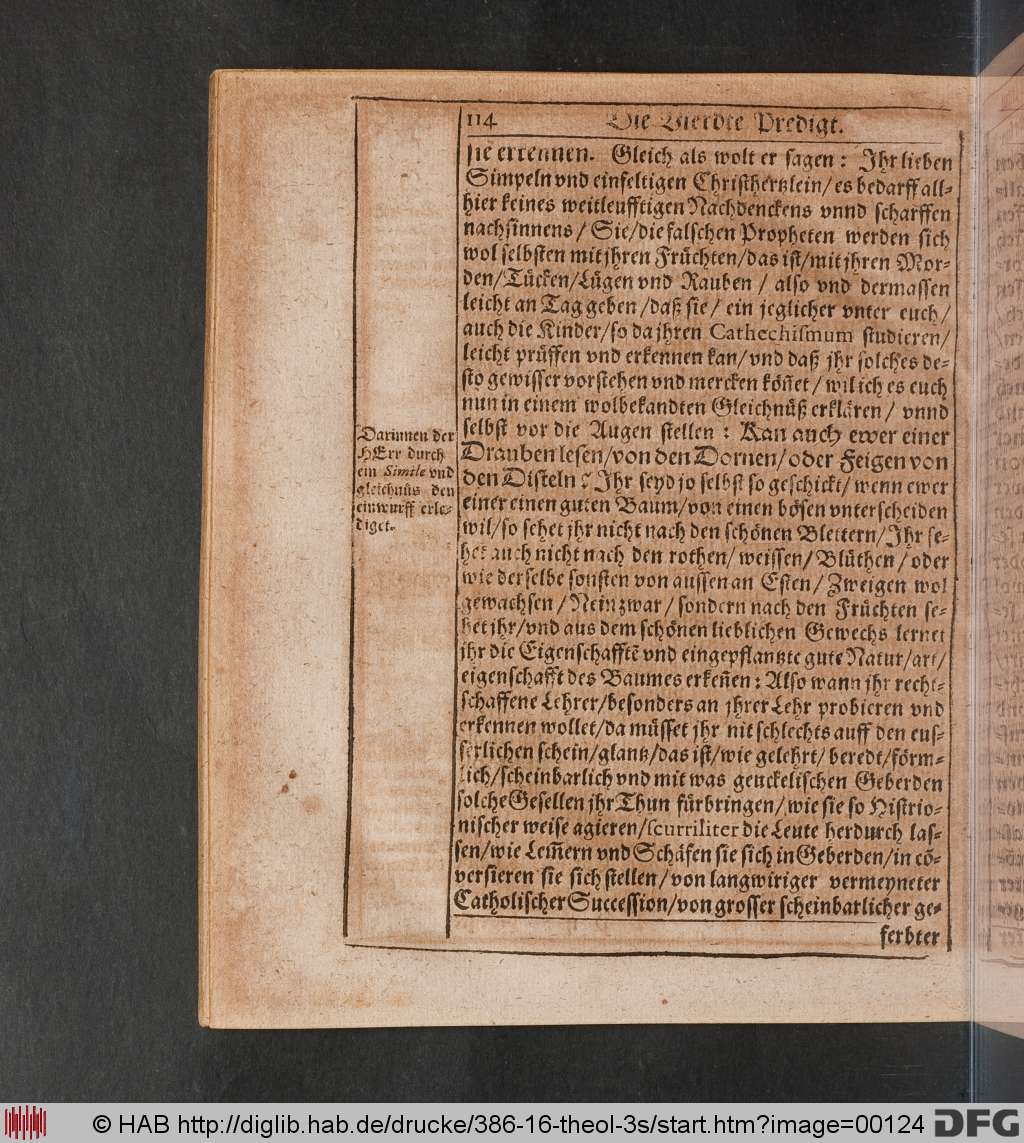 114 Die Vierdte Predigt.
sie erkennen. Gleich als wolt er sagen: Ihr lieben
Simpeln vnd einfeltigen Christhertzlein/ es bedarff all-
hier keines weitleufftigen Nachdenckens vnnd scharffen
nachsinnens/ Sie/die falschen Propheten werden sich
wol selbsten mit jhren Früchten/das ist/mit jhren Mor-
den/Tücken/Lügen vnd Rauben/ also vnd dermassen
leicht an Tag geben/daß sie/ ein jeglicher vnter euch/
auch die Kinder/so da jhren Cathechismum studieren/
leicht prüffen vnd erkennen kan/vnd daß jhr solches de-
sto gewisser vorstehen vnd mercken köñet/ wil ich es euch
nun in einem wolbekandten Gleichnüß erklären/ vnnd
selbst vor die Augen stellen: Kan auch ewer einer
Drauben lesen/von den Dornen/oder Feigen von
den Disteln? Ihr seyd jo selbst so geschickt/ wenn ewer
einer einen guten Baum/von einen bösen vnterscheiden
wil/so sehet jhr nicht nach den schönen Blettern/Ihr se-
het auch nicht nach den rothen/ weissen/ Blüthen/ oder
wie derselbe sonsten von aussen an Esten/ Zweigen wol
gewachsen/ Nein zwar/ sondern nach den Früchten se-
het jhr/vnd aus dem schönen lieblichen Gewechs lernet
jhr die Eigenschafftẽ vnd eingepflantzte gute Natur/art/
eigenschafft des Baumes erkeñen: Also wann jhr recht-
schaffene Lehrer/besonders an jhrer Lehr probieren vnd
erkennen wollet/da müsset jhr nit schlechts auff den eus-
serlichen schein/glantz/das ist/wie gelehrt/ beredt/förm-
lich/scheinbarlich vnd mit was geuckelischen Geberden
solche Gesellen jhr Thun fürbringen/ wie sie so Histrio-
nischer weise agieren/scurriliter die Leute herdurch las-
sen/wie Lem̃ern vnd Schäfen sie sich in Geberden/in cõ-
versieren sie sich stellen/ von langwiriger vermeyneter
Catholischer Succession/von grosser scheinbarlicher ge-
ferbter
Darinnen der
HErr durch
ein Simile vnd
gleichnüs den
einwurff erle-
diget.
© HAB http://diglib.hab.de/drucke/386-16-theol-3s/start.htm?image=00124 DFG